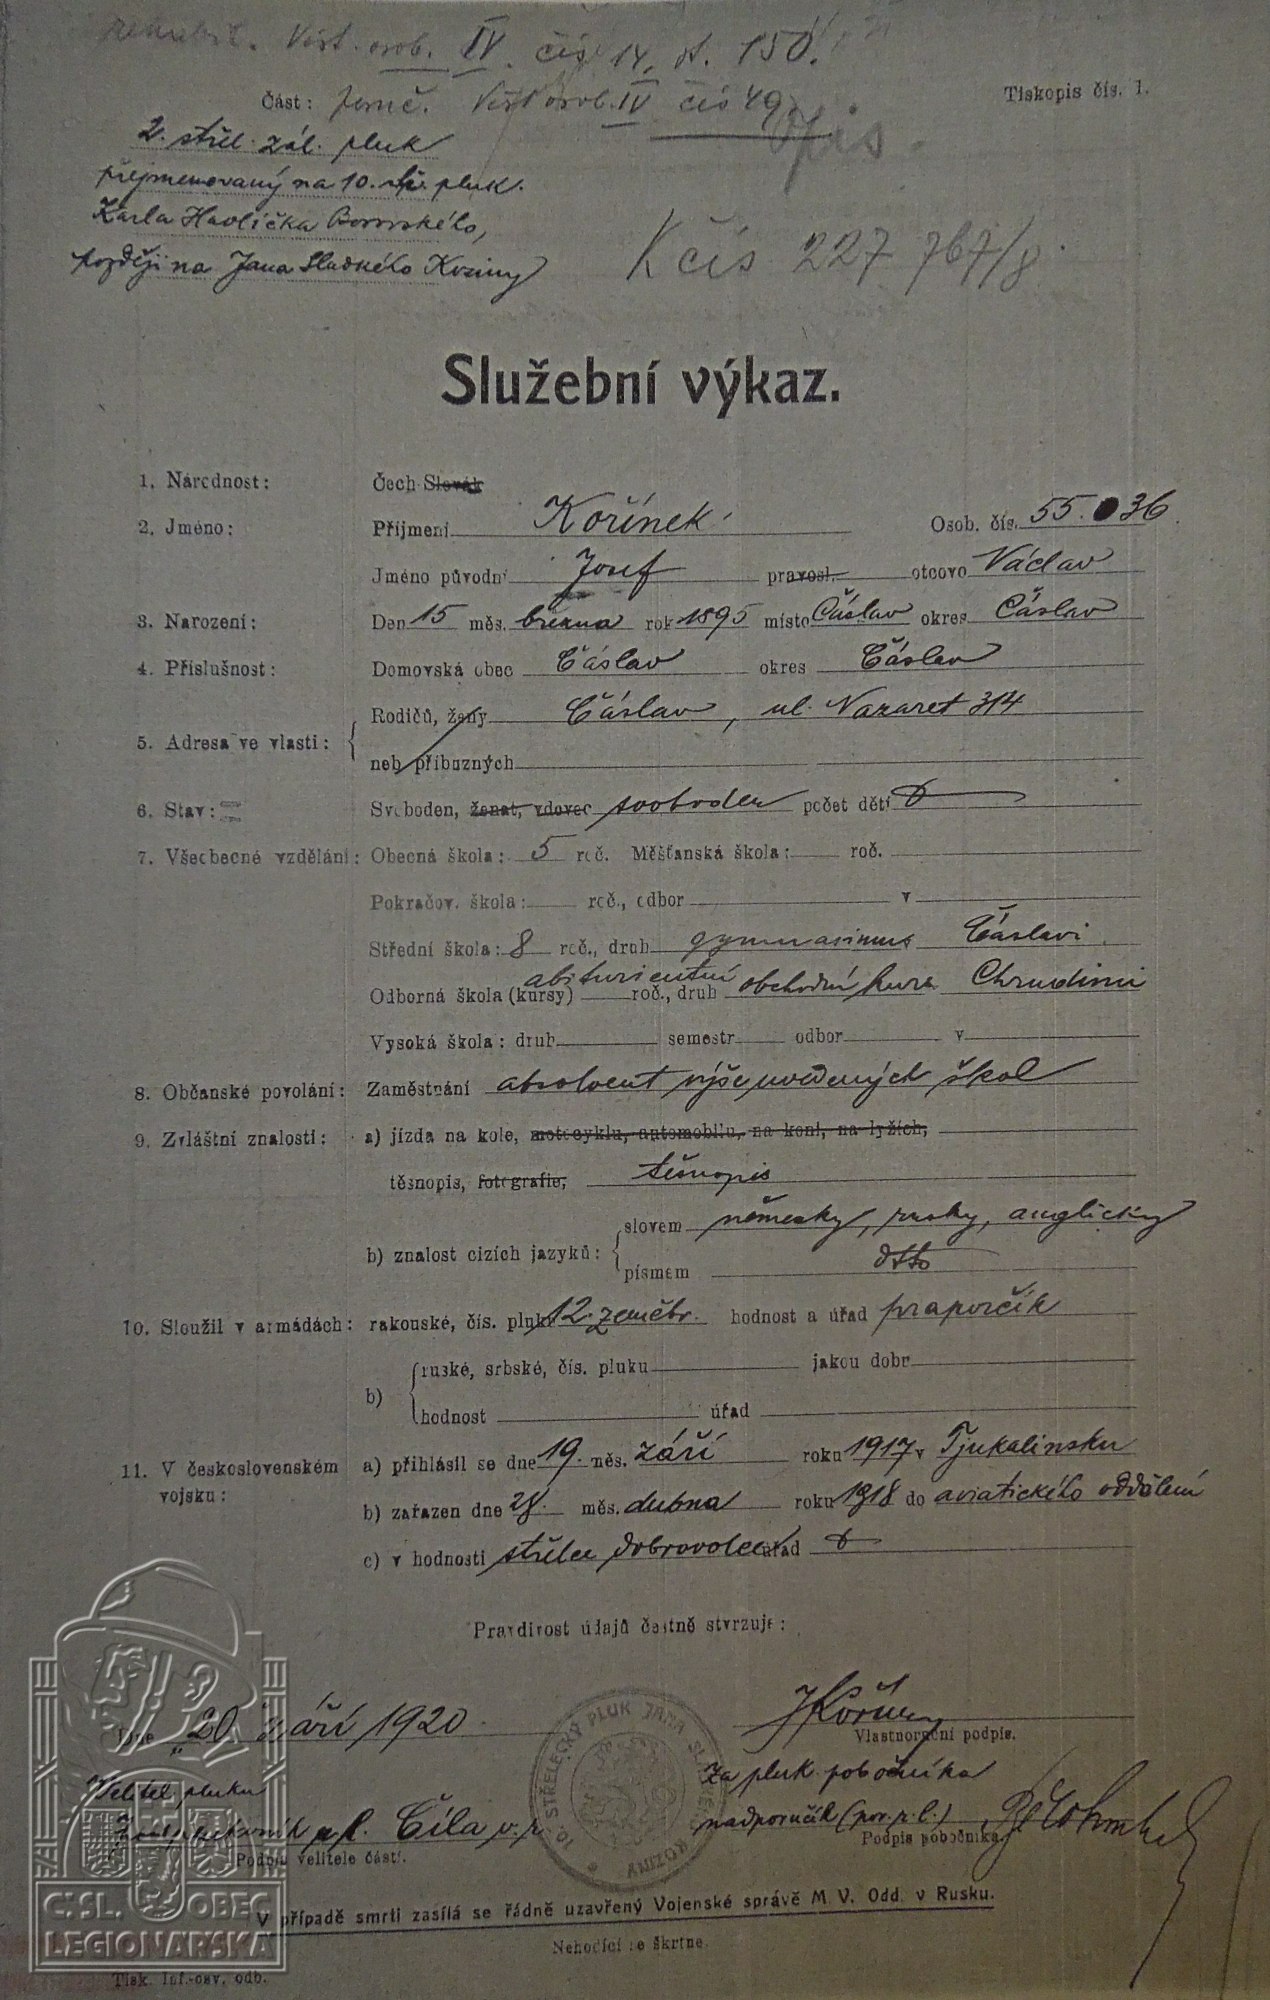 Věst. osob. IV. čís 14, st. 150.
Tiskopis čís. 1.
Část: Jmé. Věst. osob. IV čís 49
Opis.
2. střel. zál. pluk
přejmenovaný na 10. stř. pluk.
Karla Havlíčka Borovského,
později na Jana Sladkého Koziny
K čís 227.767/8.
Služební výkaz.
1. Národnost: Čech Slovák
2. Jméno: Příjmení Kořínek Osob. čís. 55.036
Jméno původní Josef pravosl. otcovo Václav
3. Narození: Den 15 měs. března rok 1895 místo Čáslav okres Čáslav
4. Příslušnost: Domovská obec Čáslav okres Čáslav
5. Adresa ve vlasti: Rodičů, ženy Čáslav, ul. Nazaret 314
neb příbuzných
6. Stav: Svoboden, ženat, vdovec svoboden počet dětí 0
7. Všeobecné vzdělání: Obecná škola: 5 roč. Měšťanská škola: roč.
Pokračov. škola: roč., odbor v
Střední škola: 8 roč., druh gymnasium Čáslavi
Odborná škola (kursy) abiturientní roč., druh obchodní kurs Chrudimi
Vysoká škola: druh semestr odbor v
8. Občanské povolání: Zaměstnání absolvent výše uvedených škol
9. Zvláštní znalosti: a) jízda na kole, motocyklu, automobilu, na koni, na lyžích,
těsnopis, fotografie, těsnopis
b) znalost cizích jazyků: slovem německy, rusky, anglicky
písmem dtto
10. Sloužil v armádách: rakouské, čís. pluku 12. zeměbr. hodnost a úřad praporčík
b) ruské, srbské, čís. pluku jakou dobr
hodnost úřad
11. V československém vojsku: a) přihlásil se dne 19. měs. září roku 1917 v Tjukalinsku
b) zařazen dne 28. měs. dubna roku 1918 do aviatického oddělení
c) v hodnosti střelce dobrovolce úřad 0
Pravdivost údajů čestně stvrzuje:
Dne 20. září 1920
JKořínek
Vlastnoruční podpis.
Velitel pluku
Za pluk. pobočníka
p.l. Číla v.r.
nadporučík (por. p. l.)
Podpis velitele části.
Podpis pobočníka.
10. STŘELECKÝ PLUK JANA SLADKÉHO KOZINY
V případě smrti zasílá se řádně uzavřený Vojenské správě M. V. Odd. v Rusku.
Nehodící se škrtne.
Tisk. Inf.-osv. odb.
Č.SL. OBEC
LEGIONÁŘSKÁ